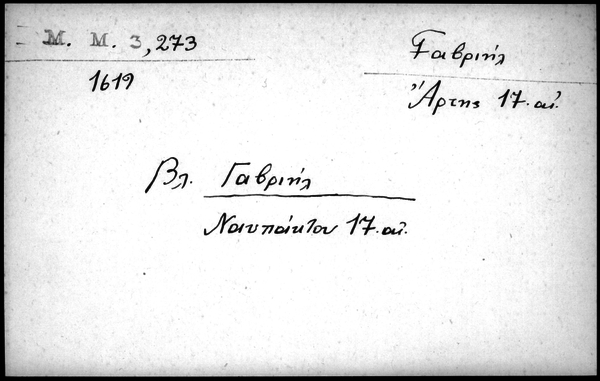 Μ. Μ. 3, 273
1619
Γαβριήλ
Ἄρτης 17. αἰ.
Βλ. Γαβριήλ
Ναυπάκτου 17. αἰ.